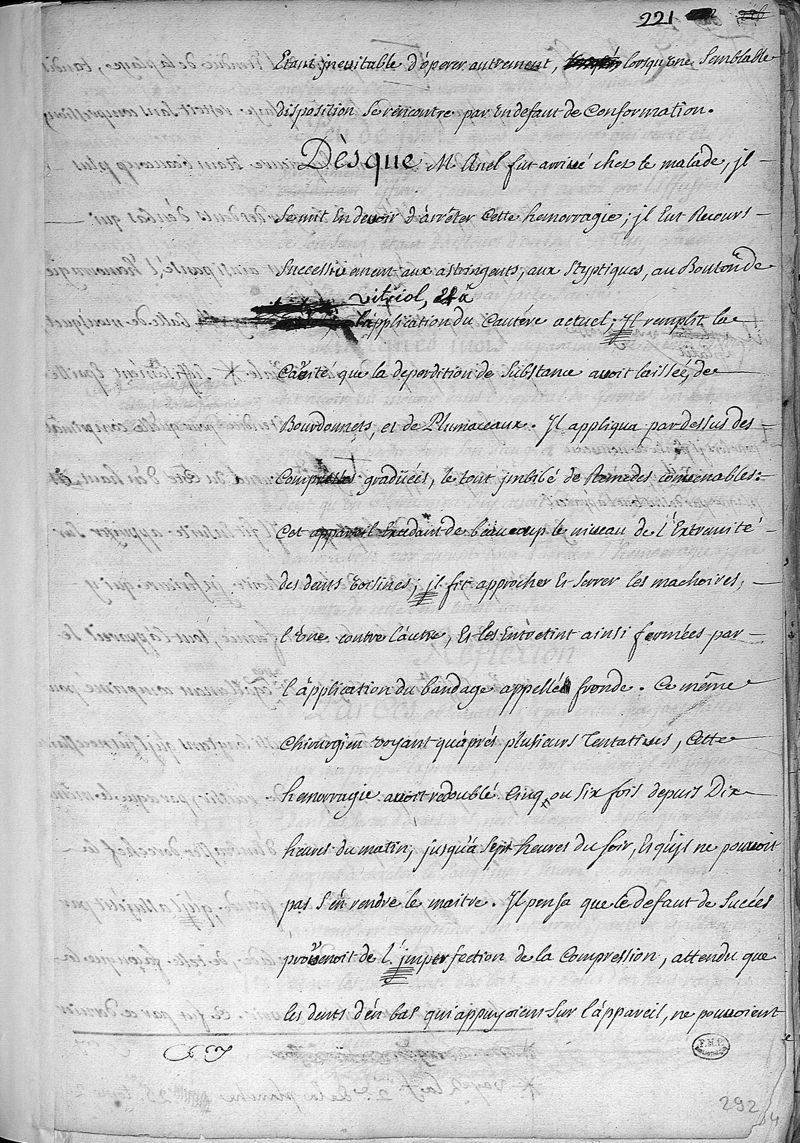 221
Etant inevitable d'óperer autrement, lorsqu'une Semblable
disposition Se rencontre par Un defaut de Conformation.
Dèsque M. Anel fut arrivé chez le malade, jl
Se mit En devoir d'arrêter Cette hemorragie; jl Eut Recours
Successivement aux astringents, aux Styptiques, au Bouton de
vitriol, et à
l'application du Cautére actuel; Il remplit la
Cavité que la deperdition de Substance avoit laissée, de
Bourdonnets, et de Plumaceaux. Il appliqua par dessus des
Compresses graduées, le tout jmbibé de Remedes convenables:
Cet appareil Excedant de beaucoup le niveau de l'Extremité
des dents voisines; jl fit approcher Et Serrer les machoires,
l'Une contre l'autre, Et les Entretint ainsi fermées par
l'application du bandage appellé fronde. Ce même
Chirurgien voyant qu'aprés plusieurs Tentatives, Cette
hemorragie avoit redoublé Cinq ou Six fois depuis Dix
heures du matin, jusqu'a Sept heures du Soir, Et qu'jl ne pouvoit
pas S'en rendre le maitre. Il pensa que le defaut de Succés
provenoit de l'jmperfection de la Compression, attendu que
les dents d'en bas qui appuyoient Sur l'appareil, ne pouvoient
292